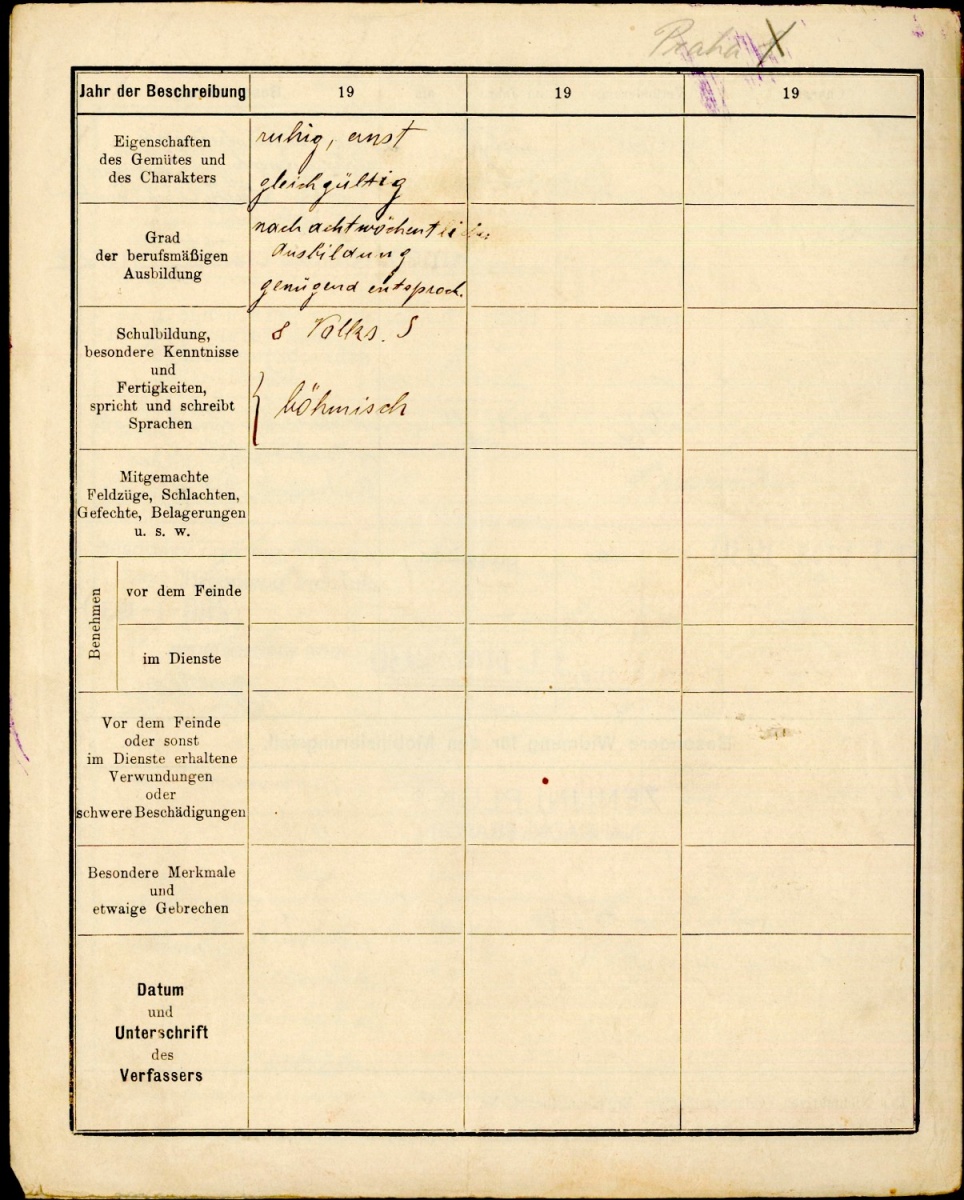 Praha X
Jahr der Beschreibung 19 19 19
Eigenschaften
des Gemütes und
des Charakters
ruhig, ernst
gleichgültig
Grad
der berufsmäßigen
Ausbildung
nach achtwöchentlicher
Ausbildung
genügend entsproch.
Schulbildung,
besondere Kenntnisse
und
Fertigkeiten,
spricht und schreibt
Sprachen
8 Volks. S
böhmisch
Mitgemachte
Feldzüge, Schlachten,
Gefechte, Belagerungen
u. s. w.
Benehmen
vor dem Feinde
im Dienste
Vor dem Feinde
oder sonst
im Dienste erhaltene
Verwundungen
oder
schwere Beschädigungen
Besondere Merkmale
und
etwaige Gebrechen
Datum
und
Unterschrift
des
Verfassers